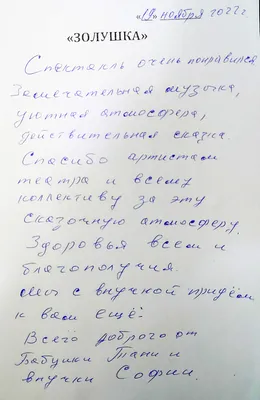 «19» ноября 2022 г
«ЗОЛУШКА»
Спектакль очень понравился
Замечательная музыка,
уютная атмосфера,
действительная сказка.
Спасибо артистам
театра и всему
коллективу за эту
сказочную атмосферу.
Здоровья всем и
благополучия.
Мы с внучкой придём
к вам ещё.
Всего доброго от
Бабушки Тани и
внучки Софии.